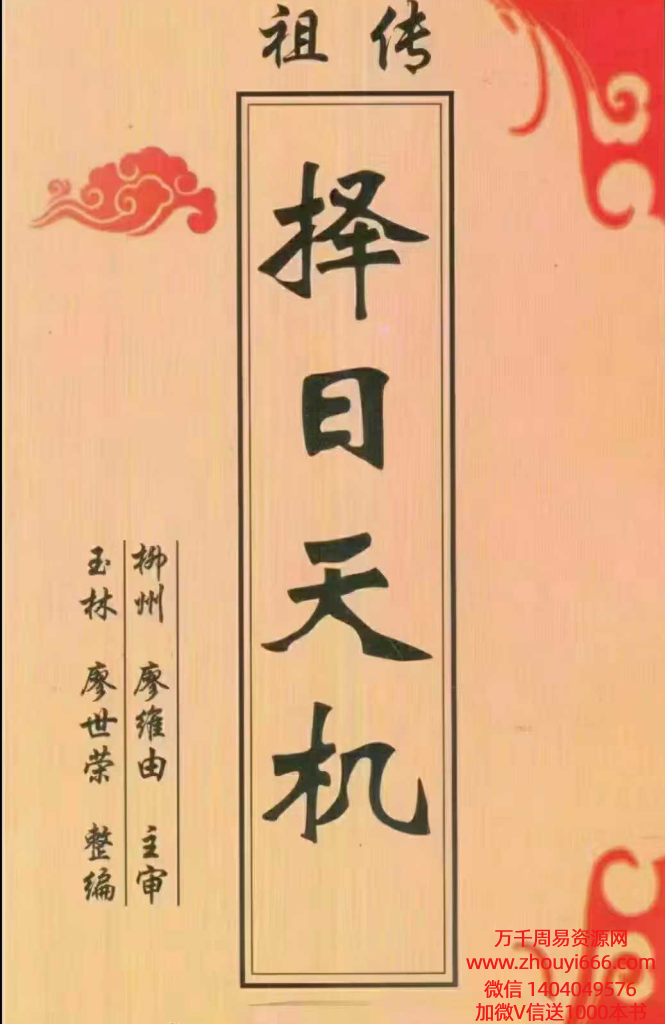 祖传
择日天机
柳州 廖维由 主审
玉林 廖世荣 整编
万千周易资源网
www.zhouyi666.com
微信 1404049576
加微V信送1000本书